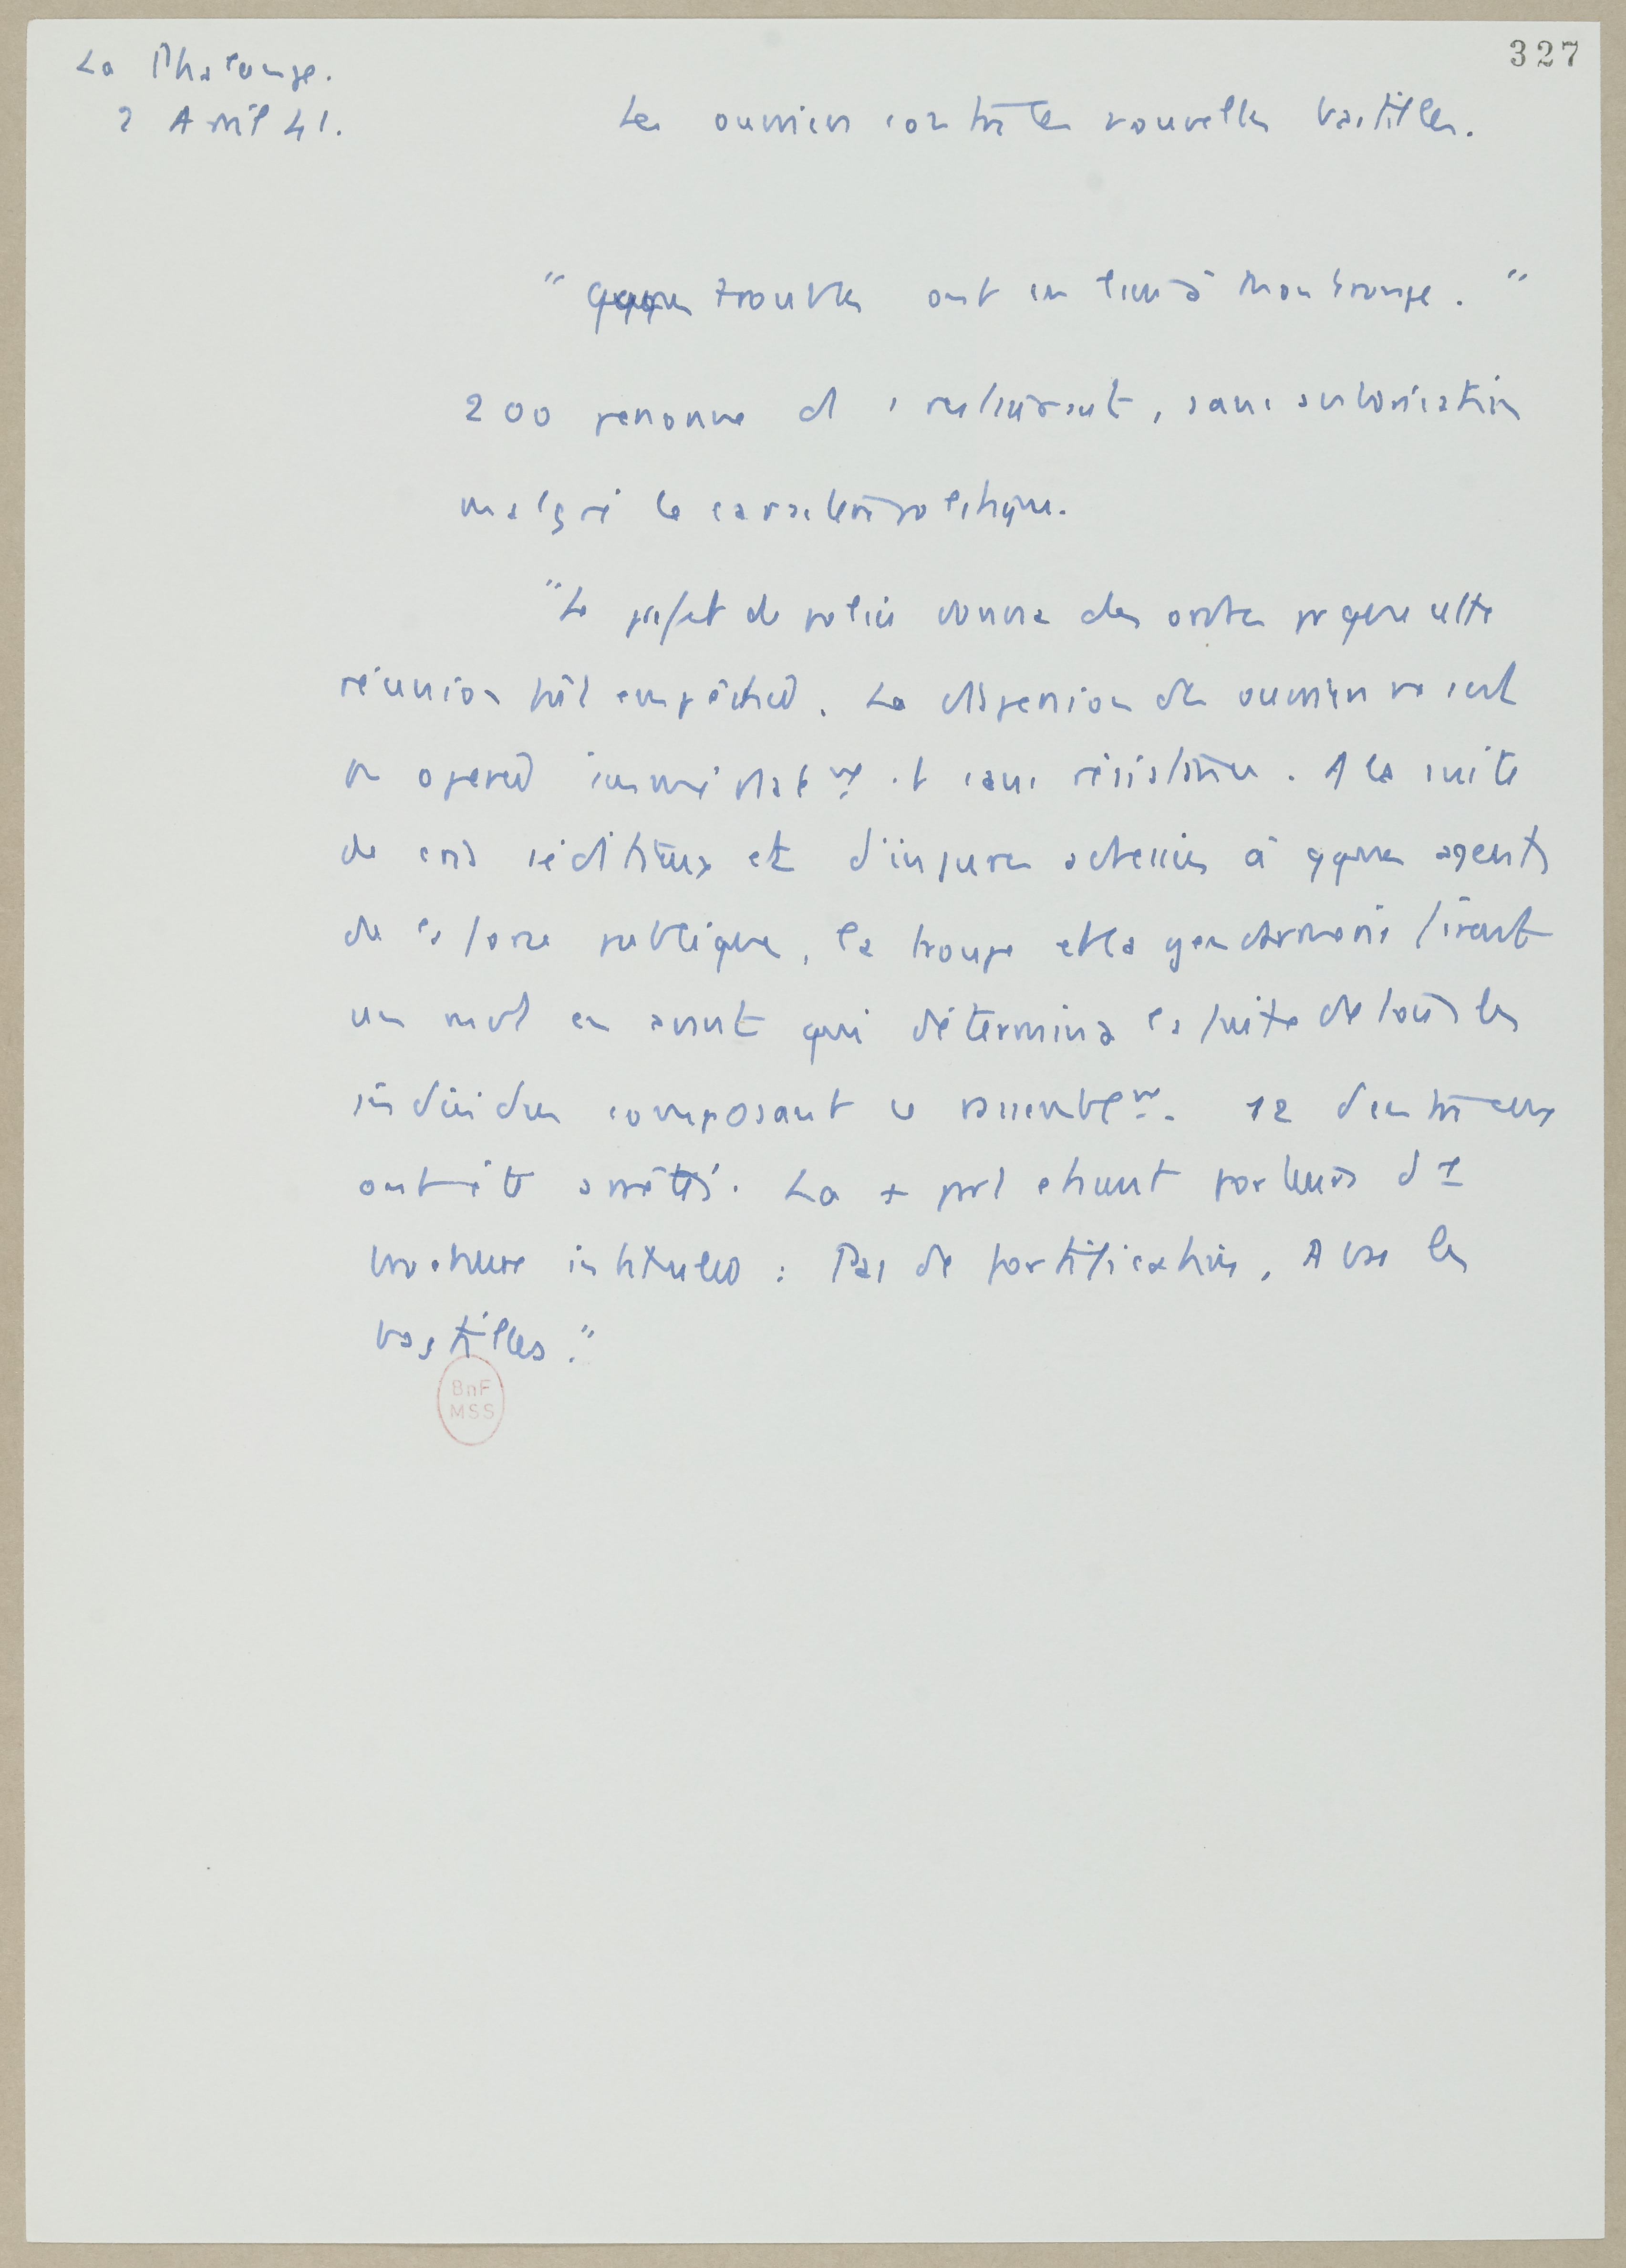 327
La Phalange.
2 Avril 41.
Les ouvriers contre les nouvelles bastilles.
" qques troubles ont eu lieu à Montrouge. "
200 personnes d s'en étaient, sans autorisation
malgré le caractère politique.
"Le préfet de police donna des ordres pr que cette
réunion fût empêchée. La dispersion des ouvriers
s'opera immédiatmt et sans résistance. A la suite
de cris séditieux et d'injures adressées à qques agents
de la force publique, la troupe et la gendarmerie firent
un mvt en avant qui détermina la fuite de tous les
individus composant ce rassemblmt. 12 d'entre eux
ont été arrêtés. La + part étaient porteurs d'1
brochure intitulée : Pas de fortifications, A bas les
bastilles."
BnF
MSS